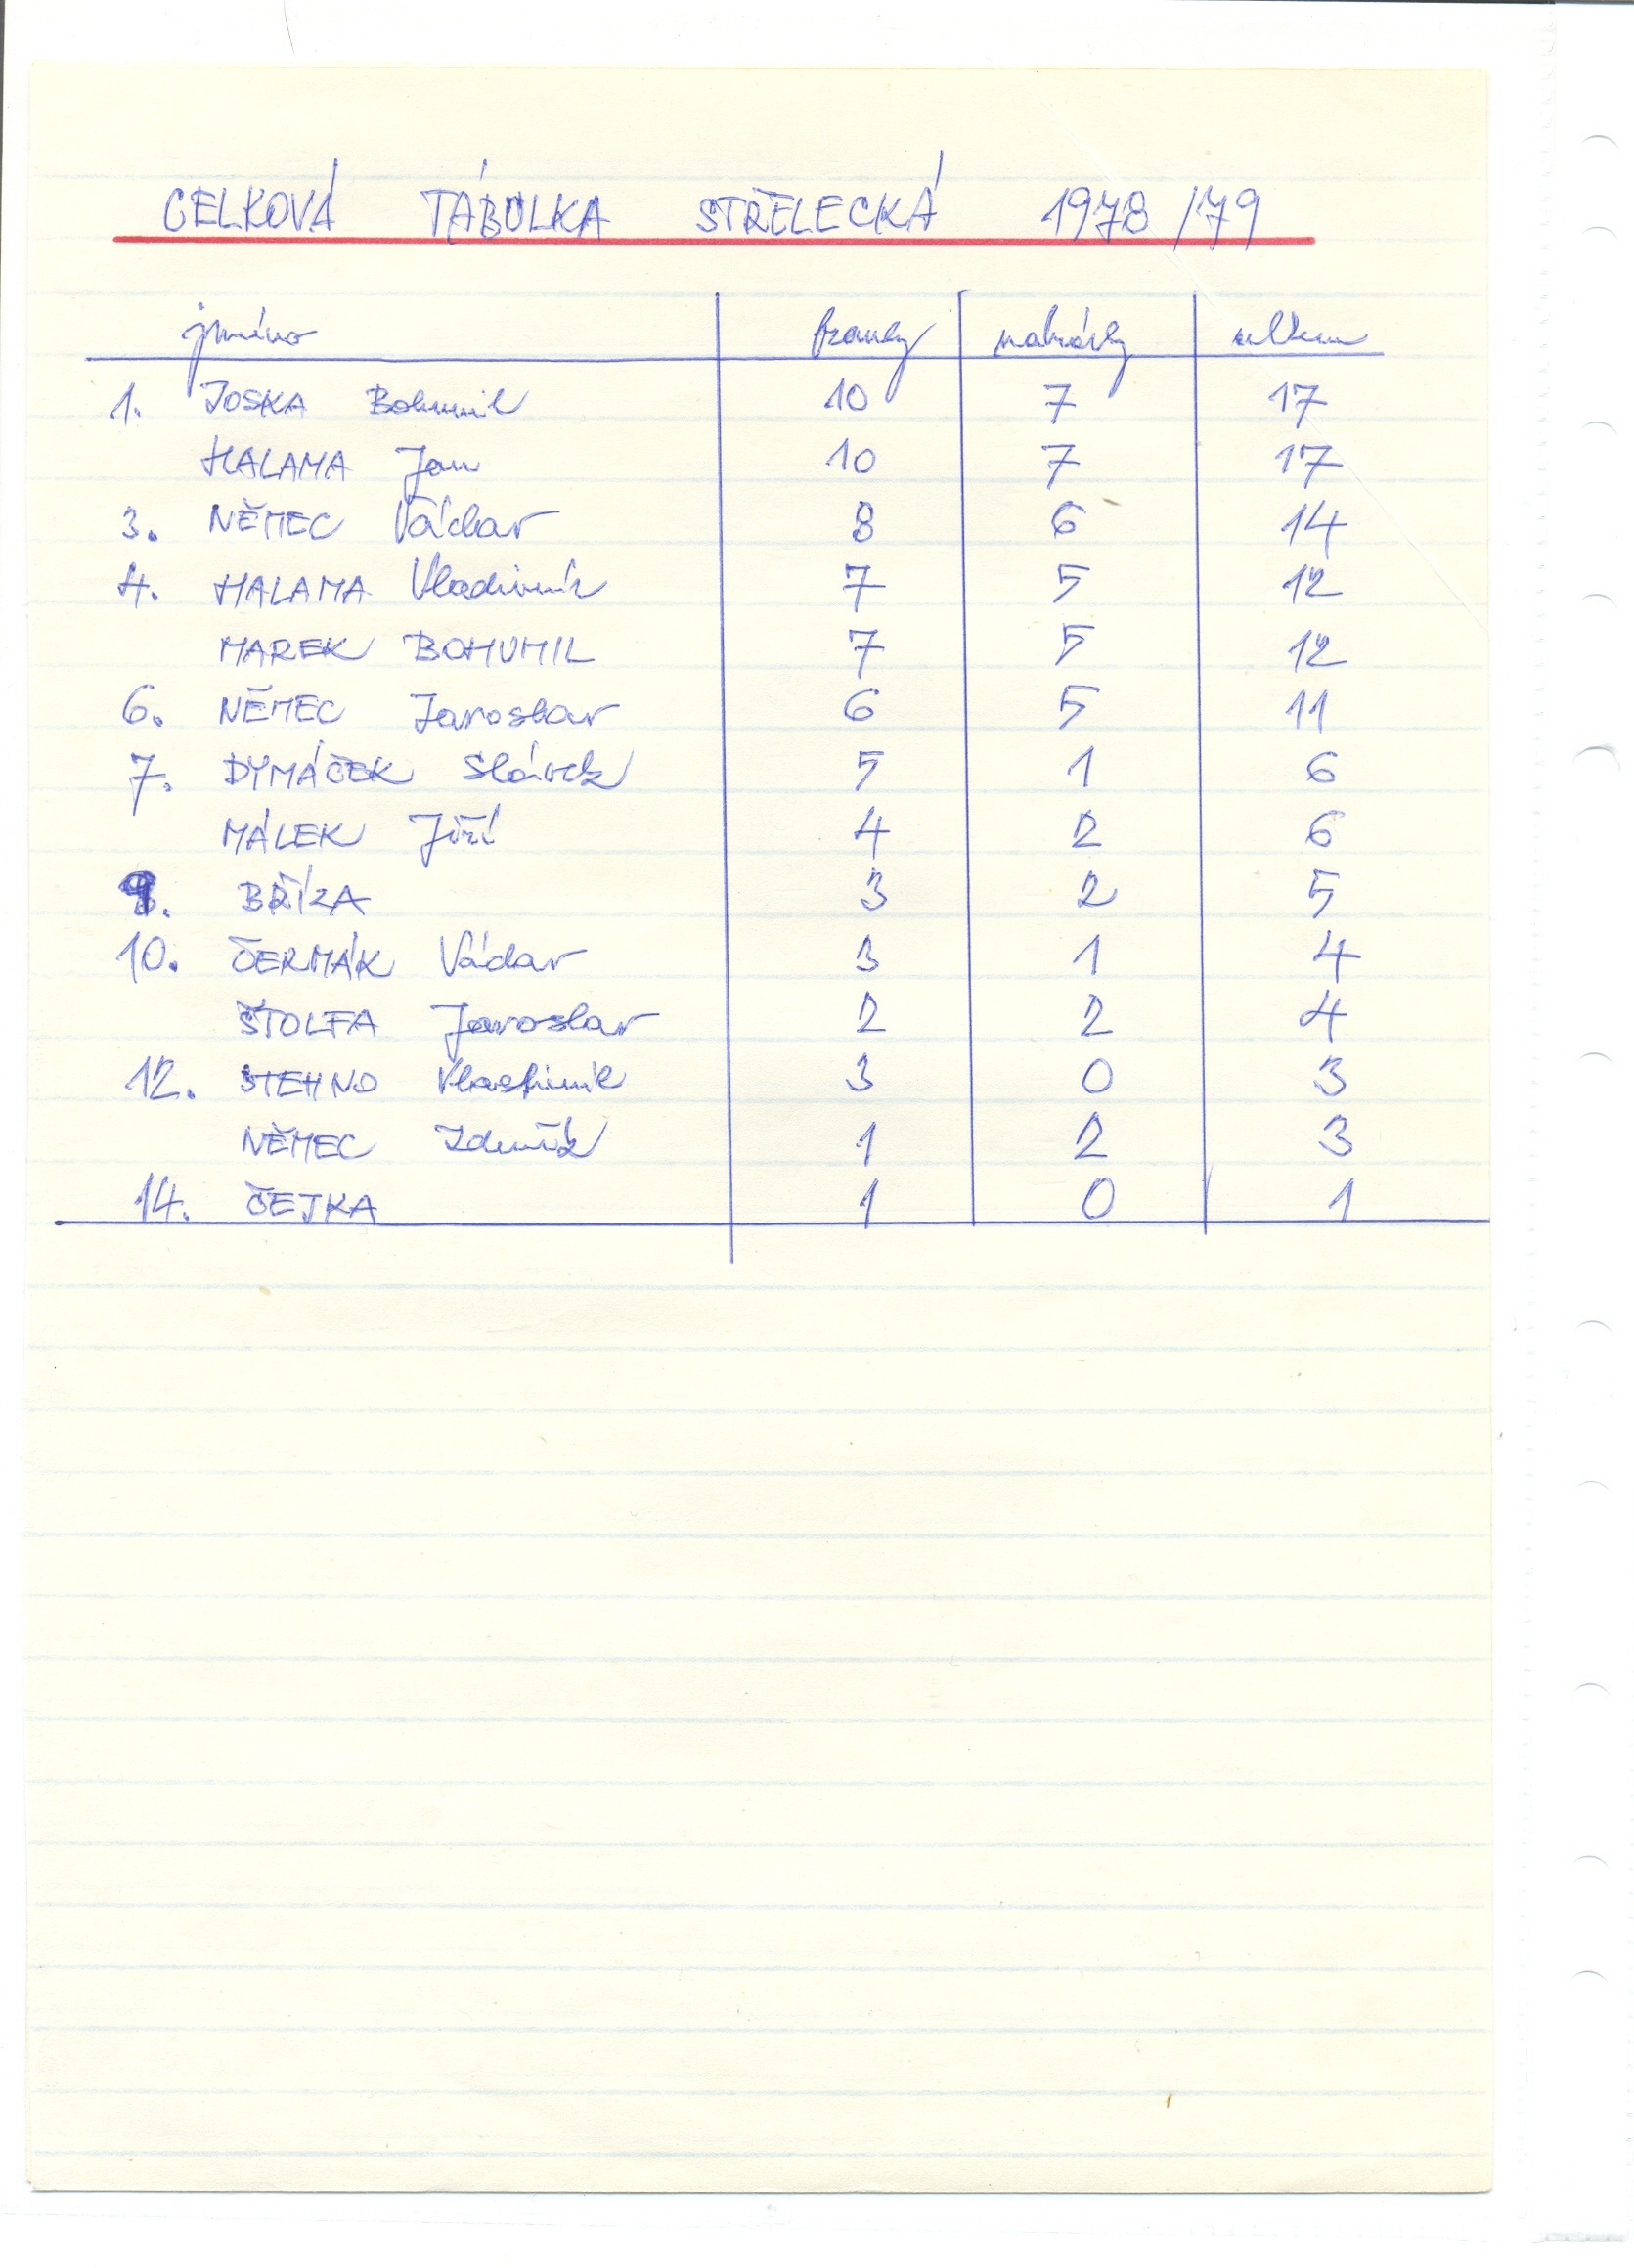 CELKOVÁ TABULKA STŘELECKÁ 1978/79
jméno branky nahrávky celkem
1. JOSKA Bohumil 10 7 17
HALAMA Jan 10 7 17
3. NĚMEC Václav 8 6 14
4. HALAMA Vladimír 7 5 12
MAREK BOHUMIL 7 5 12
6. NĚMEC Jaroslav 6 5 11
7. DYMÁČEK Slávek 5 1 6
MÁLEK Jiří 4 2 6
9. BŘÍZA 3 2 5
10. ČERMÁK Václav 3 1 4
ŠTOLFA Jaroslav 2 2 4
12. STEHNO Vlastimil 3 0 3
NĚMEC Zdeněk 1 2 3
14. ČEJKA 1 0 1